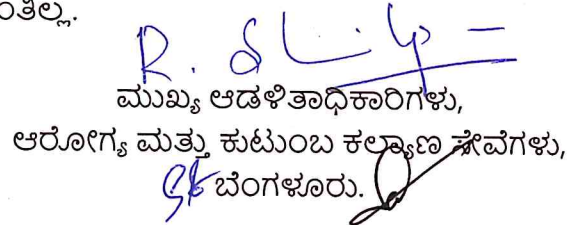 ಮುಖ್ಯ ಆಡಳಿತಾಧಿಕಾರಿಗಳು,
ಆರೋಗ್ಯ ಮತ್ತು ಕುಟುಂಬ ಕಲ್ಯಾಣ ಸೇವೆಗಳು,
ಬೆಂಗಳೂರು.